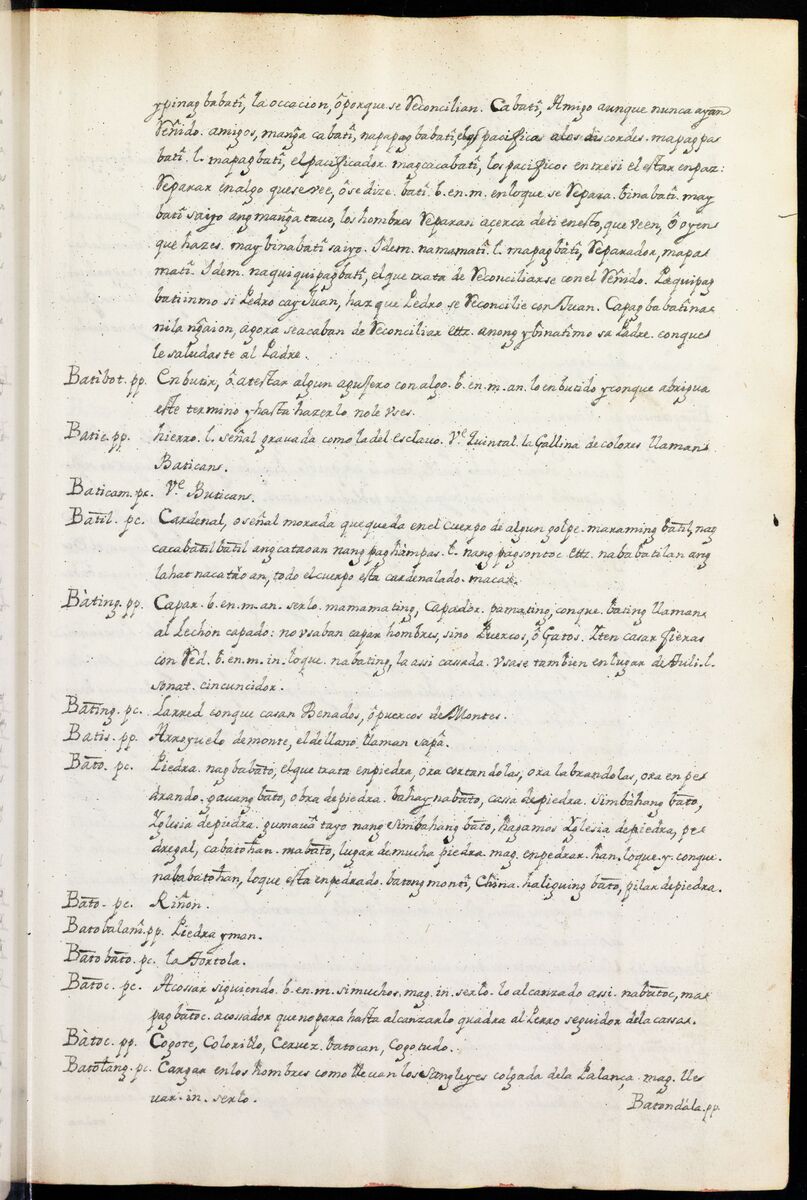 ypinag babatî, la occacion, ô porque se Reconcilian. Cabatî, Amigo aunque nunca ayan
Reñido. amigos, manga cabatî, napapag babatî, elq̃ pacifica a los discordes. mapag pa
batî. l. mapag batî, el pacificador. mag cacabatî, los pacificos entresi el estar en paz:
Reparar en algo que se vee, ô se dize. batî. b. en. m. en loque se Repara. binabatî. may
batî saiyo ang manga tauo, los hombres Reparan açerca de ti en esto, que veen, ô oyen
que hazes. may binabatî saiyo. Idem. namamatî. l. mapag batî, Reparador, mapa
matî. Idem. naquiquipag batî, el que trata de Reconciliarse con el Reñido. Paquipag
batiinmo si Pedro cay Juan, haz que Pedro se Reconcilie con Juan. Capag babatî na
nila ngaion, agora se acaban de Reconciliar ettz. anong ybinatimo sa Padre. con que
le saludaste al Padre.
Batîbot. pp. Enbutir, ô atestar algun agusero con algo. b. en. m. an. lo enbutido y conque abrigua
este termino y hasta hazerlo no le vses.
Batic. pp. hierro. l. señal gravada como la del esclavo. Vᵉ Quintal. la Gallina de colores llaman
Baticans.
Baticam. pc. Vᵉ Buticans.
Batīl. pc. Cardenal, o señal morada que queda en el cuerpo de algun golpe. maraming batil, nag
cacabatil batil ang cataoan nang paghàmpas. l. nang pagsontoc ettz. nababatilan ang
lahat na catao an, todo el cuerpo esta cardenalado. macar.
Bàting. pp. Capar. b. en. m. an. serlo. mamamating, Capador. pamating, conque. bating llaman
al Lechon capado: no vsaban capar hombres, sino Puercos, ô Gatos. Iten casar fieras
con Red. b. en. m. in. lo que. nabating, la assi cassada. vsase tambien en lugar de tuli. l.
sonat. cincuncidor.
Batīng. pc. La rred conque casan Benados, ô puercos de Montes.
Batis. pp. Arroyuelo de monte, el del llano llaman sapâ.
Batō. pc. Piedra. nagbabatō, el que trata en piedra, ora cortandolas, ora labrandolas, ora en pe
drando. gauang batō, obra de piedra. bahay na batō, cassa de piedra. simbahang batō,
Yglesia de piedra. gumauâ tayo nang simbahang batō, hagamos Yglesia de piedra, pe
dregal, cabatohan. mabatō, lugar de mucha piedra. mag. enpedrar. han. loque. y. conque.
nababatohan, lo que esta enpedrado. batong montî, China. haliguing batō, pilar de piedra.
Batō. pc. Riñon.
Batobalanî. pp. Piedra yman.
Batō batō. pc. la tortola.
Batōc. pc. Acossar siguiendo. b. en. m. si muchos. mag. in. serlo. lo alcanzado assi. nabatoc, ma
pag batoc. acossador que no para hasta alcanzarlo quadra al Perro seguidor de la cassar.
Bàtoc. pp. Cogote, Colorillo, Cervez. batocan, Cogotudo.
Batotang. pc. Cargar en los hombres como llevan los Sangleyes colgada dela Palança. mag. lle
uar. in. serlo.
Batondàla. pp.